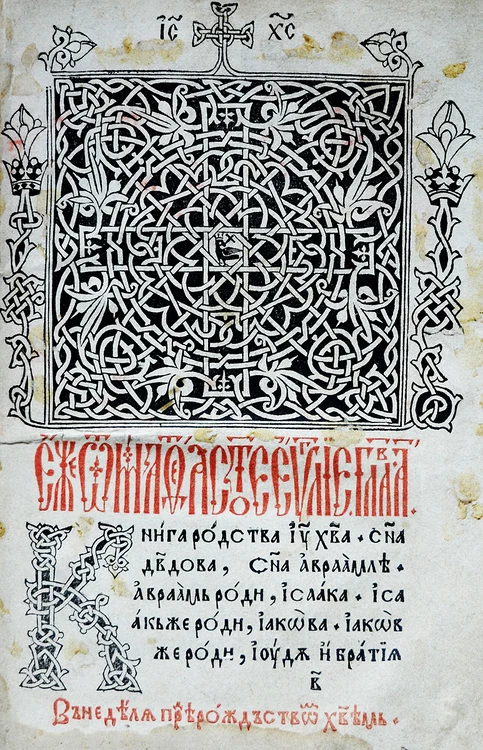 ІС ХС
ЄЖЕ Ѿ МАТѲ҃Є҃А СТОЄ ЄѴ҃ЛІЄ ГЛАВА А҃.
Книга родства і҃у х҃ва · с҃на
дв҃дова, с҃на авраа́млѥ ·
авраа́мь ро́ди, ісаа́ка · іса
а́кь же ро́ди, іа́кѡва · іа́кѡв
же ро́ди, іоу́дѫ и братїѧ
в҃
Въ недѣлѧ прѣ рождьством х҃вѣмь ·